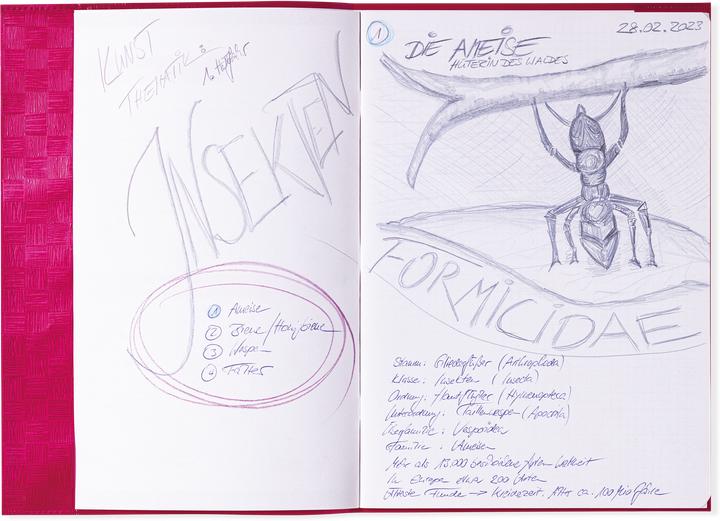 KUNST
THEMATIK:
1. Halbjahr
INSEKTEN
1 Ameise
2 Biene/Honigbiene
3 Wespe
4
1
28.02.2023
DIE AMEISE
HÜTERIN DES WALDES
FORMICIDAE
Stamm: Gliederfüßer (Arthropoda)
Klasse: Insekten (Insecta)
Ordnung: Hautflügler (Hymenoptera)
Unterordnung: Taillenwespen (Apocrita)
Überfamilie: Vespoidea
Familie: Ameisen
Mehr als 13.000 beschriebene Arten weltweit
In Europa etwa 200 Arten
Älteste Funde → Kreidezeit. Alter ca. 100 Mio Jahre